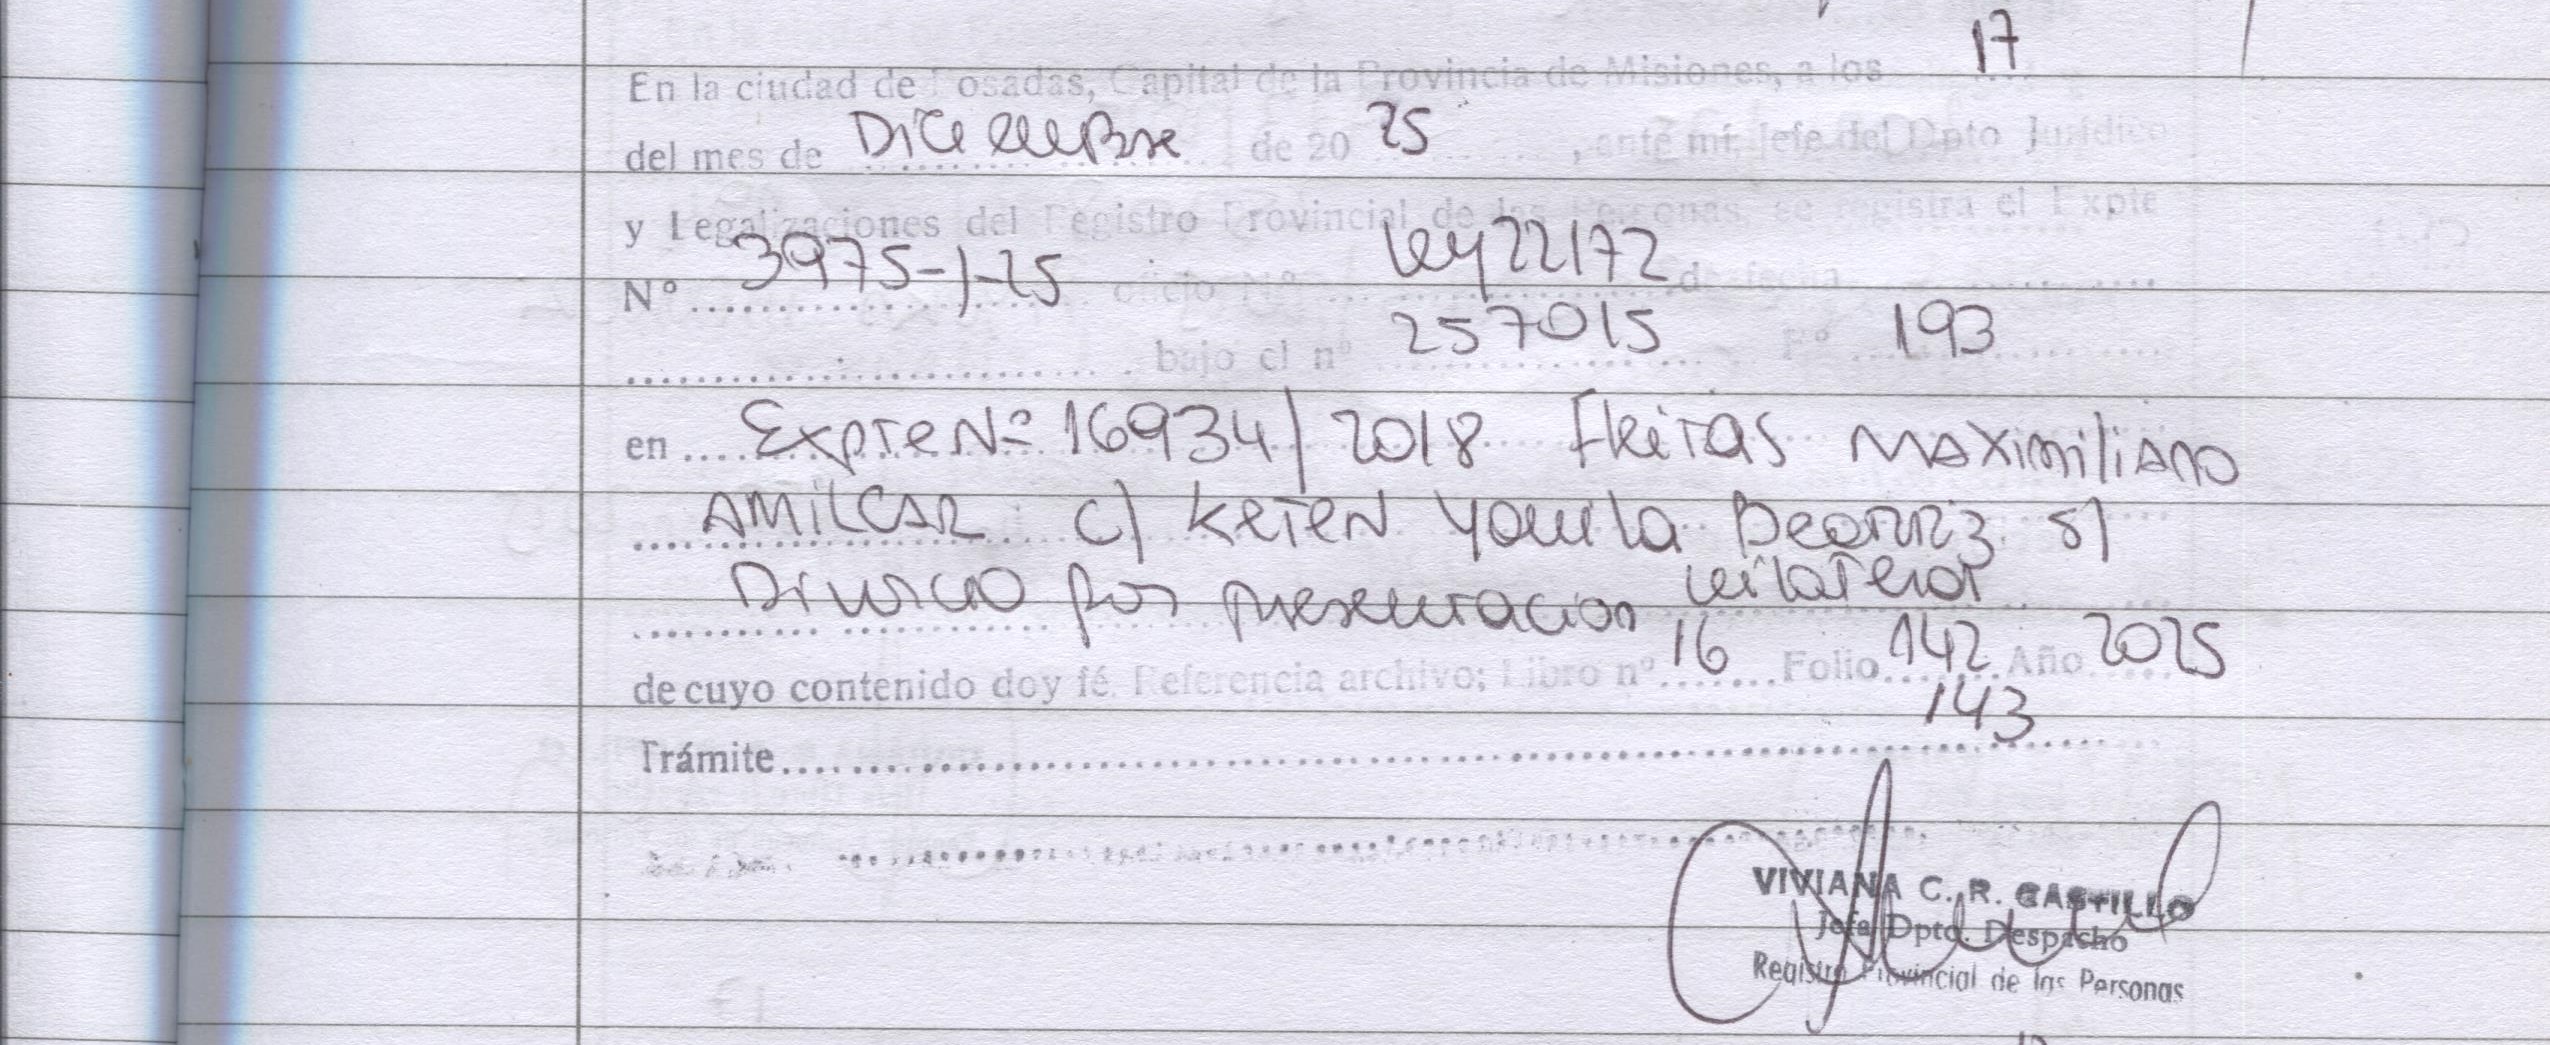 En la ciudad de Posadas, Capital de la Provincia de Misiones, a los 17
del mes de Diciembre de 20 25, ante mí, Jefe del Dpto Jurídico
y Legalizaciones del Registro Provincial de las Personas, se registra el Expte
N° 3975-J-25 oficio N° Ley 22172 de fecha
bajo el n° 257015 F° 193
en Expte Nº 16934/2018 Fleitas Maximiliano
AMILCAR c/ KETEN Yamila Beatriz s/
Divorcio por presentacion unilateral
de cuyo contenido doy fé. Referencia archivo; Libro nº 16 Folio 142 Año 2025
143
Trámite
VIVIANA C. R. CASTILLO
Jefa Dpto. Despacho
Registro Provincial de las Personas